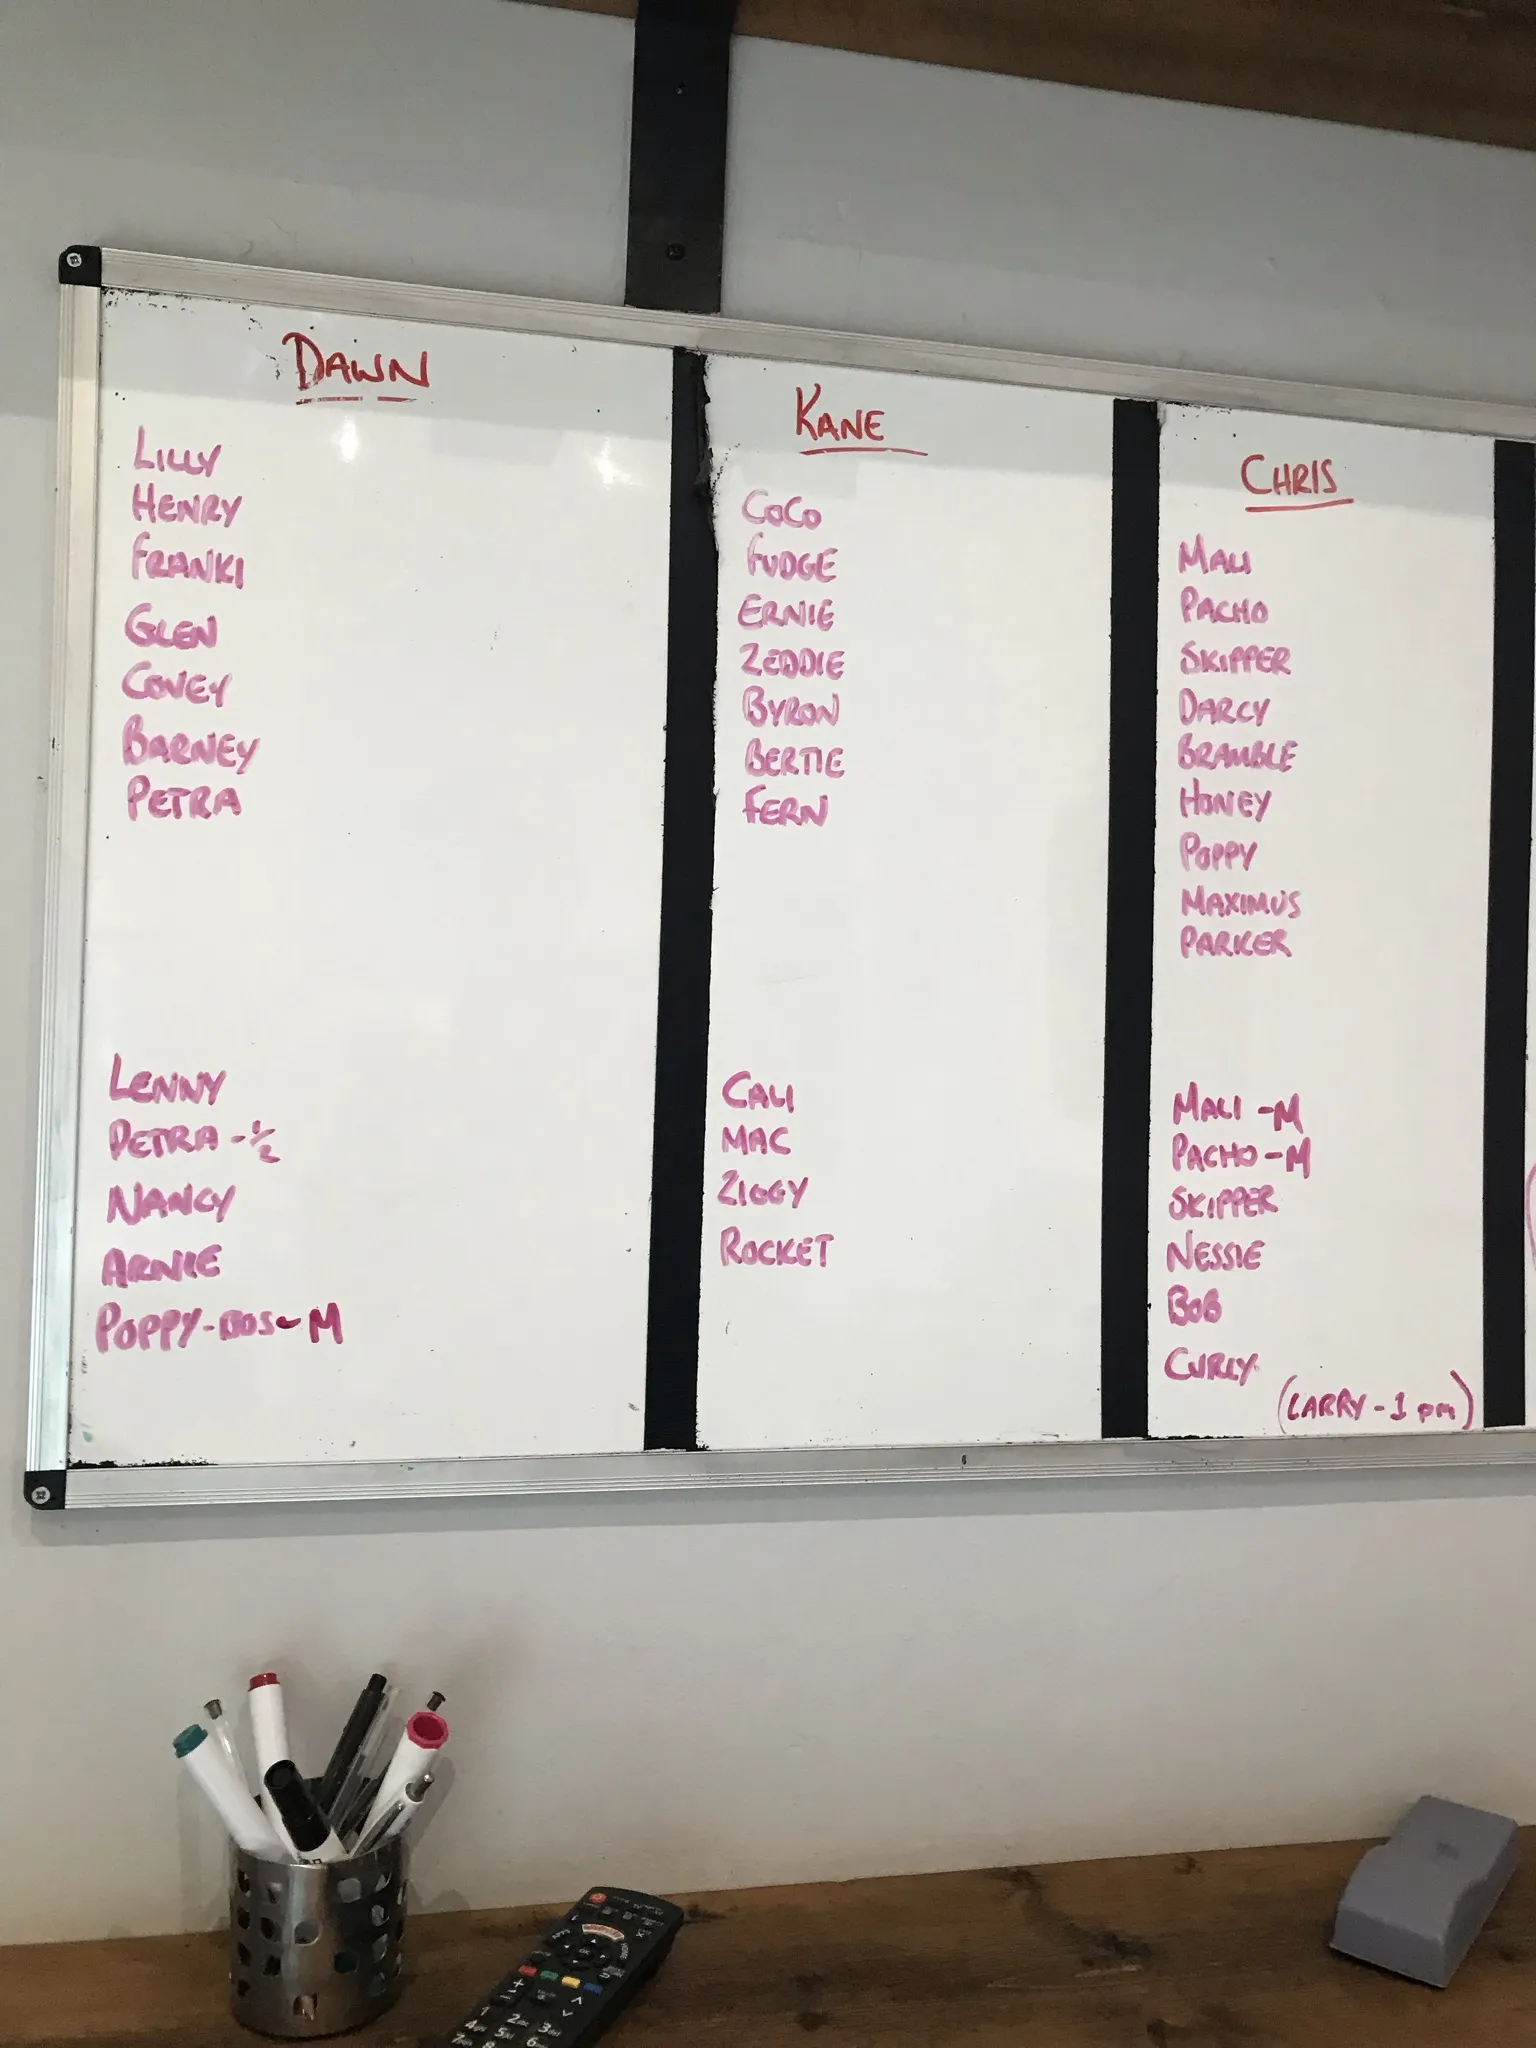 DAWN
LILLY
HENRY
FRANKI
GLEN
COVEY
BARNEY
PETRA
LENNY
PETRA - 1/2
NANCY
ARNIE
POPPY-DOS - M
KANE
COCO
FUDGE
ERNIE
ZEDDIE
BYRON
BERTIE
FERN
CALI
MAC
ZIGGY
ROCKET
CHRIS
MALI
PACHO
SKIPPER
DARCY
BRAMBLE
HONEY
POPPY
MAXIMUS
PARKER
MALI - M
PACHO - M
SKIPPER
NESSIE
BOB
CURLY
(LARRY - 1 pm)